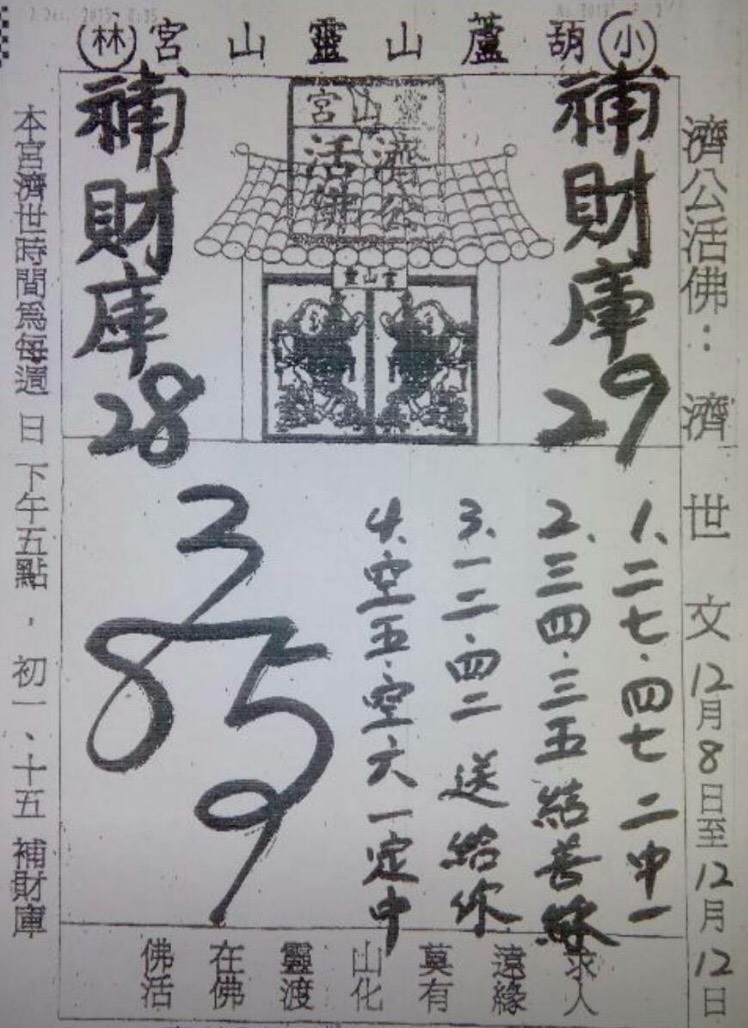 小葫蘆山靈山宮林
濟公活佛：濟世文12月8日至12月12日
補財庫29
靈山宮
濟公
活佛
靈山宮
補財庫28
1、二七、四七 二中一
2、三四、三五 結善緣
3、一二、四二 送給你
4、空五、空六 一定中
3
8 5
9
求人
遠緣
莫有
山化
靈渡
在佛
佛活
本宮濟世時間為每週日下午五點，初一、十五補財庫